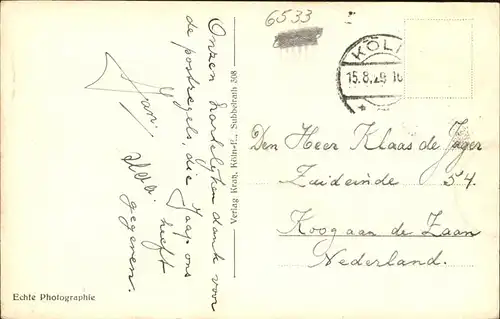 6533
KÖL
15.8.29.16
Onzen hartelijken dank voor
de postzegels, die Jaap ons
heeft
gegeven.
Verlag Krah, Köln-L., Sülzgürtel
Den Heer Klaas de Jager
Zuideinde 54.
Koog aan de Zaan
Nederland.
Echte Photographie